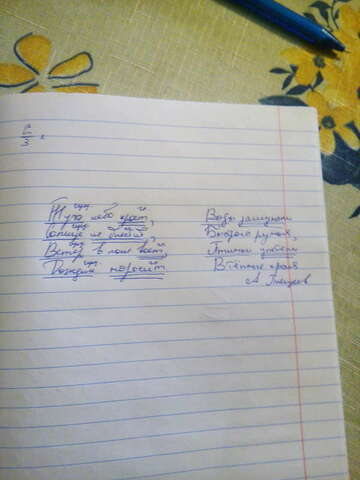 Туча небо кроет,
Солнце не блестит,
Ветер в поле воет,
Дождик моросит
Воды зашумели
Быстрого ручья,
Птички улетели
В тёплые края
А Плещеев